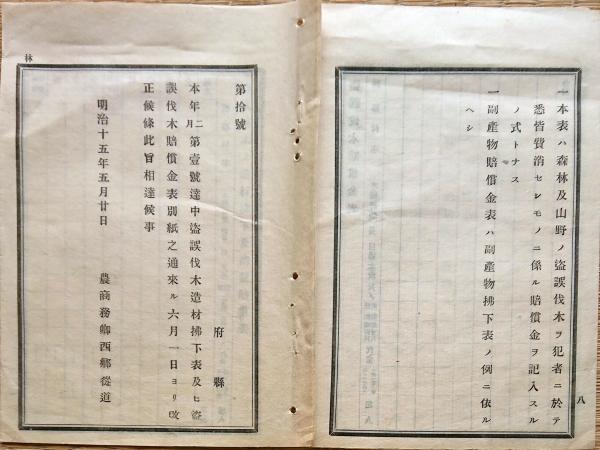 八
一本表ハ森林及山野ノ盜誤伐木ヲ犯者ニ於テ
悉皆費消セシモノニ係ル賠償金ヲ記入スル
ノ式トナス
一副產物賠償金表ハ副產物拂下表ノ例ニ依ル
ヘシ
林
第拾號
府縣
本年二月第壹號達中盜誤伐木造材拂下表及ヒ盜
誤伐木賠償金表別紙之通來ル六月一日ヨリ改
正候條此旨相達候事
明治十五年五月廿日
農商務卿西鄕從道